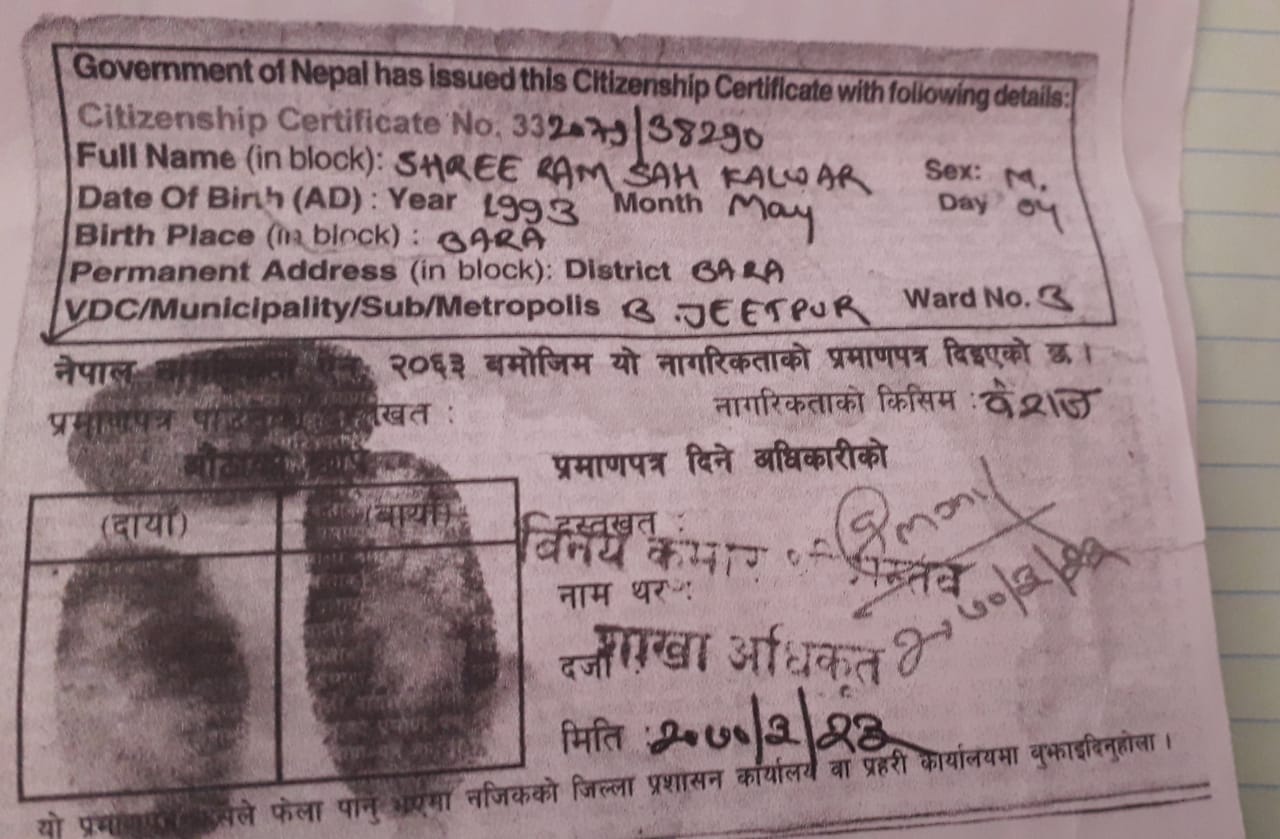 Government of Nepal has issued this Citizenship Certificate with following details:
Citizenship Certificate No. 332079/38290
Full Name (in block): SHREE RAM SAH KALWAR Sex: M.
Date Of Birth (AD) : Year 1993 Month May Day 04
Birth Place (in block) : BARA
Permanent Address (in block): District BARA
VDC/Municipality/Sub/Metropolis B.JEETPUR Ward No. 3
नेपाल २०६३ बमोजिम यो नागरिकताको प्रमाणपत्र दिइएको छ ।
प्रमाणपत्र :
नागरिकताको किसिम : वंशज
प्रमाणपत्र दिने अधिकारीको
(दायाँ) (बायाँ)
दस्तखत :
विनय कुमार
नाम थर :
दर्जा शाखा अधिकृत
मिति : २०७०/२/२३
यो फेला पार्नु भएमा नजिकको जिल्ला प्रशासन कार्यालय वा प्रहरी कार्यालयमा बुझाइदिनुहोला ।